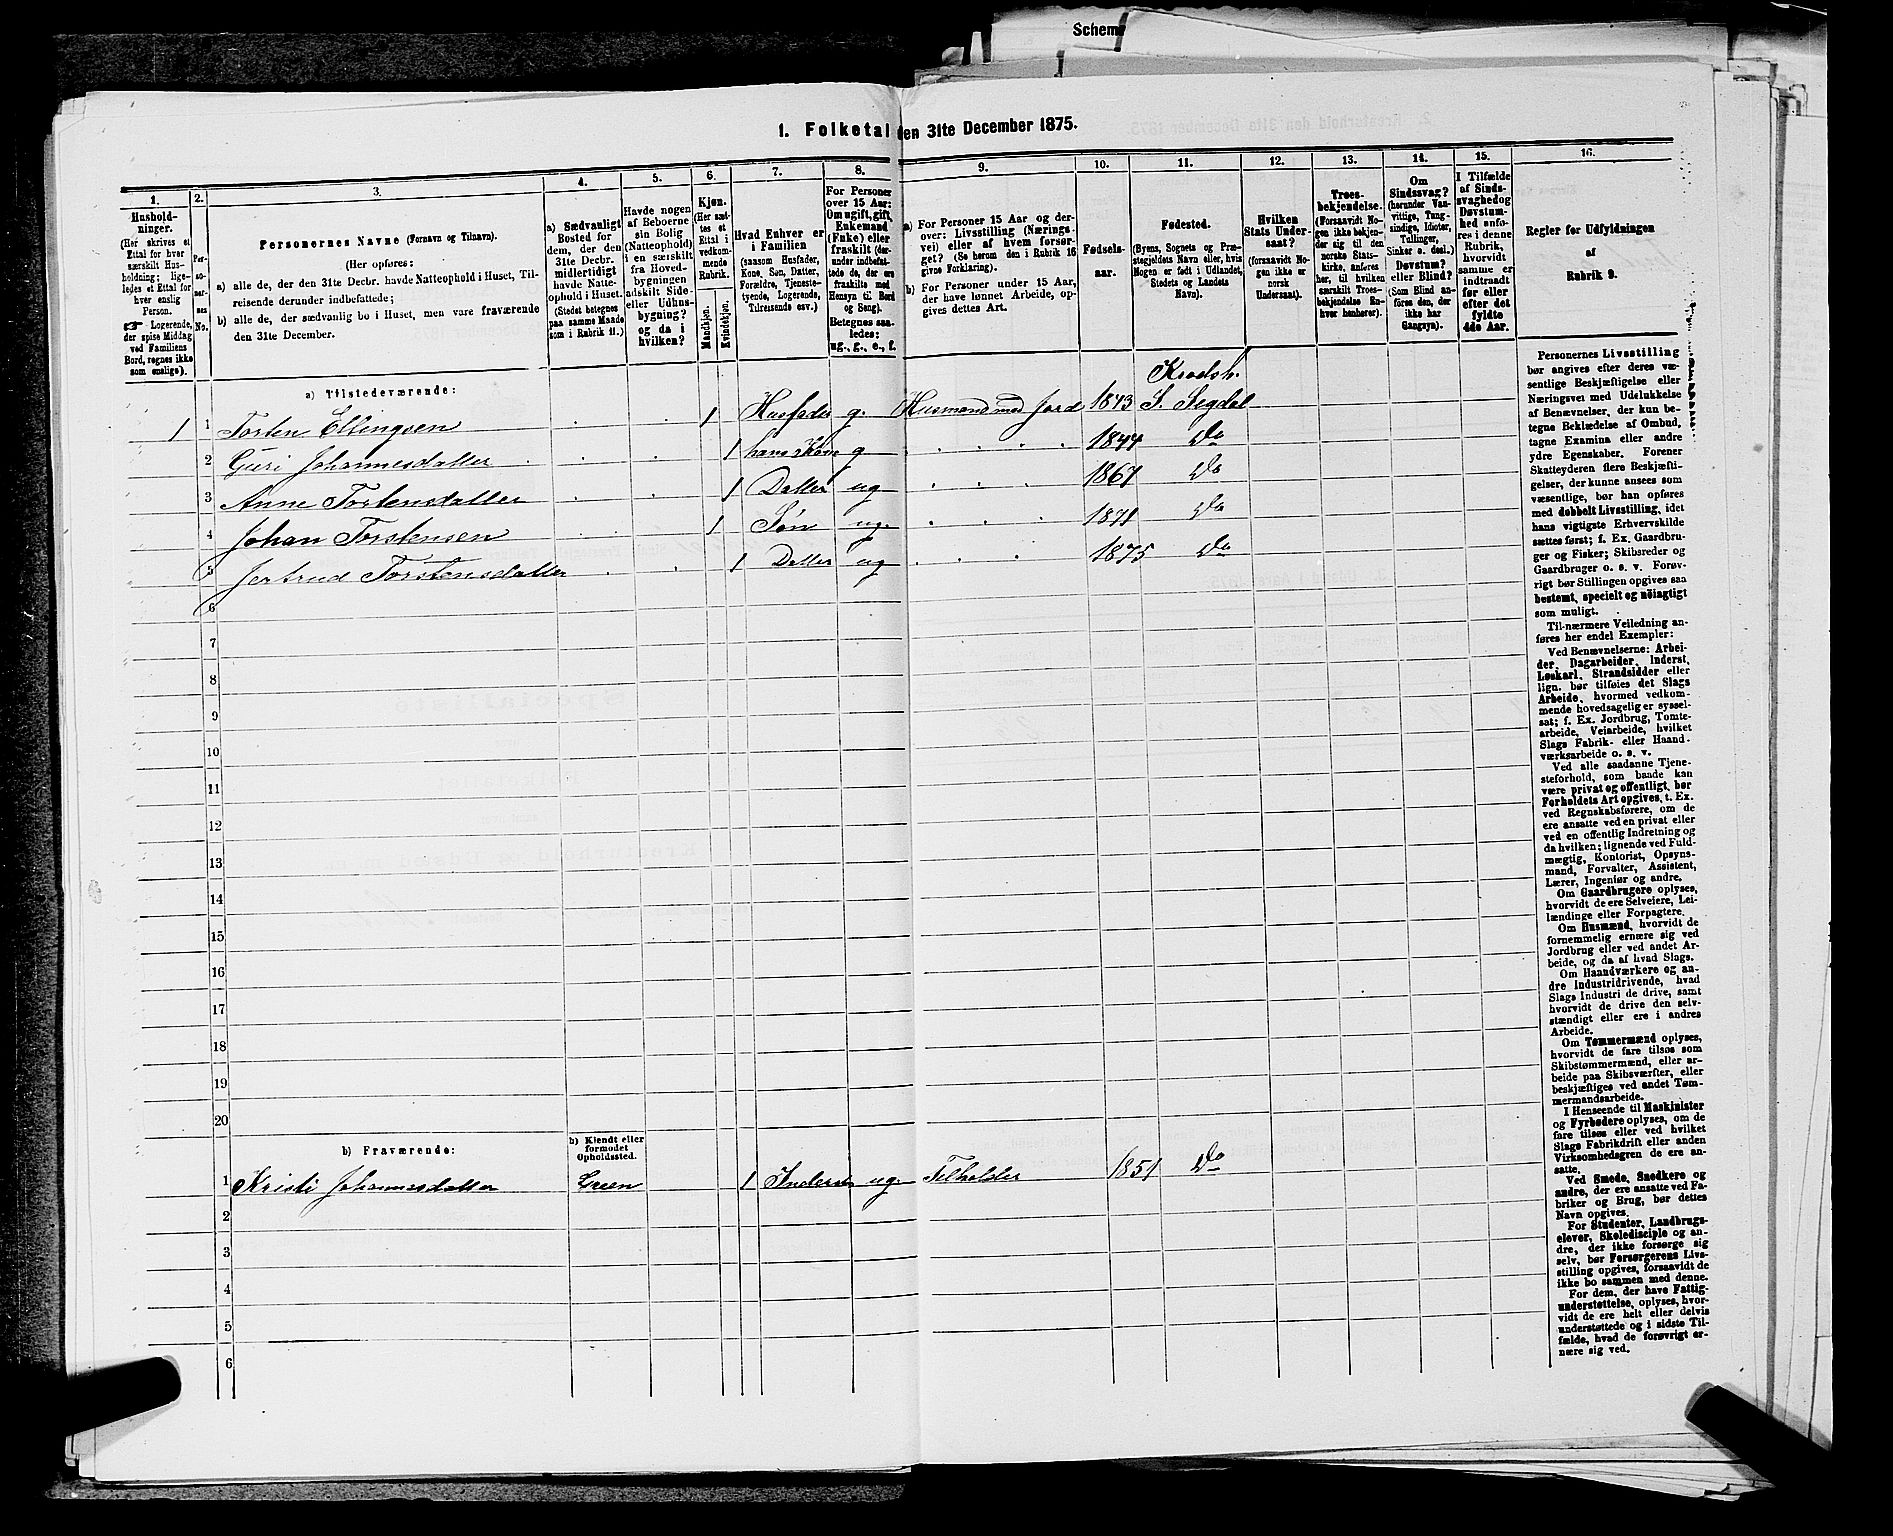 Schem
1. Folketal den 31te December 1875.
1.
Hushold-
ninger.
(Her skrives et
Ettal for hver
særskilt Hus-
holdning; lige-
ledes et Ettal for
hver enslig
Person.
☞ Logerende,
der spise Middag
ved Familiens
Bord, regnes ikke
som enslige).
2.
Per-
so-
ner-
nes
No.
3.
Personernes Navne (Fornavn og Tilnavn).
(Her opføres:
a) alle de, der den 31te Decbr. havde Natteophold i Huset, Til-
reisende derunder indbefattede;
b) alle de, der sædvanlig bo i Huset, men vare fraværende
den 31te December.
4.
a) Sædvanligt
Bosted for
dem, der den
31te Decbr.
midlertidigt
havde Natte-
ophold i Huset.
(Stedet betegnes
paa samme Maade
som i Rubrik 11.)
5.
Havde nogen
af Beboerne
sin Bolig
(Natteophold)
i en særskilt
fra Hoved-
bygningen
adskilt Side-
eller Udhus-
bygning?
og da i
hvilken?
6.
Kjøn.
(Her sæt-
tes et
Ettal i
vedkom-
mende
Rubrik.
Mandkjøn.
Kvindekjøn.
7.
Hvad Enhver er
i Familien
(saasom Husfader,
Kone, Søn, Datter,
Forældre, Tjeneste-
tyende, Logerende,
Tilreisende osv.)
8.
For Personer
over 15 Aar:
Om ugift, gift,
Enkemand
(Enke) eller
fraskilt (der-
under indbefat-
tede de, der ere
fraskilte med
Hensyn til Bord
og Seng).
Betegnes saa-
ledes:
ug., g., e., f.
9.
a) For Personer 15 Aar og der-
over: Livsstilling (Nærings-
vei) eller af hvem forsør-
get? (Se herom den i Rubrik 16
givne Forklaring).
b) For Personer under 15 Aar,
der have lønnet Arbeide, op-
gives dettes Art.
10.
Fødsels-
aar.
11.
Fødested.
(Byens, Sognets og Præ-
stegjeldets Navn, eller, hvis
Nogen er født i Udlandet,
Stedets og Landets
Navn).
12.
Hvilken
Stats Under-
saat?
(forsaavidt No-
gen ikke er
norsk
Undersaat).
13.
Troes-
bekjendelse.
(Forsaavidt No-
gen ikke bekjen-
der sig til den
norske Stats-
kirke, anføres
her, til hvilken
særskilt Troes-
bekjendelse En-
hver henhører).
14.
Om
Sindssvag?
(herunder Van-
vittige, Tung-
sindige, Idioter,
Tullinger,
Sinker o. desl.)
Døvstum?
eller Blind?
(Som Blind an-
føres den, der
ikke har
Gangsyn).
15.
I Tilfælde
af Sinds-
svaghed og
Døvstum-
hed anfø-
res i denne
Rubrik,
hvorvidt
samme er
indtraadt
før eller
efter det
fyldte
4de Aar.
16.
Regler for Udfyldningen
af
Rubrik 9.
a) Tilstedeværende:
Krødsh.
1 1 Torsten Ellingsen 1 Husfader g. Husmand med Jord 1843 S. Segdal
2 Guri Johannesdatter 1 hans Kone g 1844 Do
3 Anne Torstensdatter 1 Datter ug 1867 Do
4 Johan Torstensen 1 Søn ug. 1871 Do
5 Jertrud Torstensdatter 1 Datter ug 1875 Do
6
7
8
9
10
11
12
13
14
15
16
17
18
19
20
b) Fraværende:
b) Kjendt eller
formodet
Opholdssted.
1 Kristi Johannesdatter Green 1 Inderst ug. Filholder 1851 Do
2
3
4
5
6
Personernes Livsstilling
bør angives efter deres væ-
sentlige Beskjæftigelse eller
Næringsvei med Udelukkelse
af Benævnelser, der kun be-
tegne Beklædelse af Ombud,
tagne Examina eller andre
ydre Egenskaber. Forener
Skatteyderen flere Beskjæfti-
gelser, der kunne ansees som
væsentlige, bør han opføres
med dobbelt Livsstilling, idet
hans vigtigste Erhvervskilde
sættes først; f. Ex. Gaardbru-
ger og Fisker; Skibsreder og
Gaardbruger o. s. v. Forøv-
rigt bør Stillingen opgives saa
bestemt, specielt og nøiagtigt
som muligt.
Til nærmere Veiledning an-
føres her endel Exempler:
Ved Benævnelserne: Arbei-
der, Dagarbeider, Inderst,
Løskarl, Strandsidder eller
lign. bør tilføies det Slags
Arbeide, hvormed vedkom-
mende hovedsagelig er syssel-
sat; f. Ex. Jordbrug, Tomte-
arbeide, Veiarbeide, hvilket
Slags Fabrik- eller Haand-
værksarbeide o. s. v.
Ved alle saadanne Tjene-
steforhold, som baade kan
være privat og offentligt, bør
Forholdets Art opgives, t. Ex.
ved Regnskabsførere, om de
ere ansatte ved en privat eller
ved en offentlig Indretning og
da hvilken; lignende ved Fuld-
mægtig, Kontorist, Opsyns-
mand, Forvalter, Assistent,
Lærer, Ingeniør og andre.
Om Gaardbrugere oplyses,
hvorvidt de ere Selveiere, Lei-
lændinge eller Forpagtere.
Om Husmænd, hvorvidt de
fornemmelig ernære sig ved
Jordbrug eller ved andet Ar-
beide, og da af hvad Slags.
Om Haandværkere og an-
dre Industridrivende, hvad
Slags Industri de drive, samt
hvorvidt de drive den selv-
stændigt eller ere i andres
Arbeide.
Om Tømmermænd oplyses,
hvorvidt de fare tilsøs som
Skibstømmermænd, eller ar-
beide paa Skibsværfter, eller
beskjæftiges ved andet Tøm-
mermandsarbeide.
I Henseende til Maskinister
og Fyrbødere oplyses, om de
fare tilsøs eller ved hvilket
Slags Fabrikdrift eller anden
Virksomhedsgren de ere an-
satte.
Ved Smede, Snedkere og
andre, der ere ansatte ved Fa-
briker og Brug, bør dettes
Navn opgives.
For Studenter, Landbrugs-
elever, Skoledisciple og an-
dre, der ikke forsørge sig
selv, bør Forsørgerens Livs-
stilling opgives, forsaavidt de
ikke bo sammen med denne.
For dem, der have Fattig-
understøttelse, oplyses, hvor-
vidt de ere helt eller delvis
understøttede og i sidste Til-
fælde, hvad de forøvrigt er-
nære sig ved.